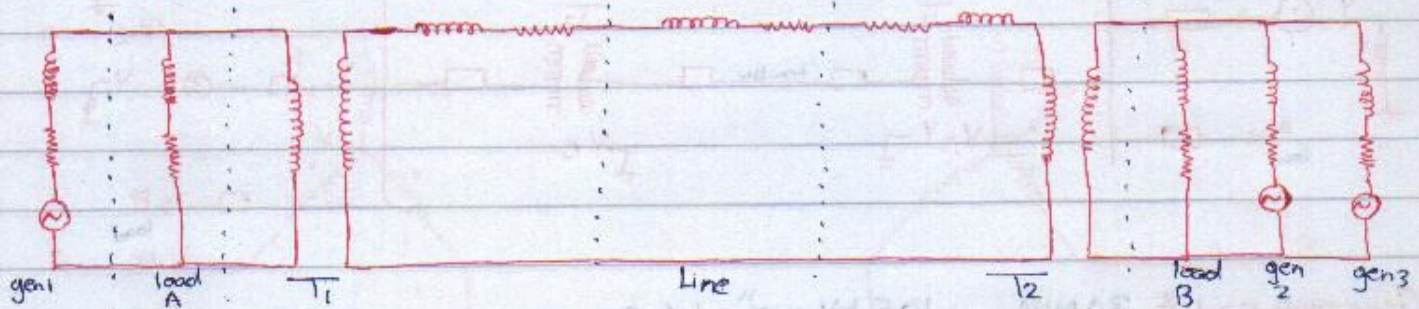 gen1 load A T1 Line T2 load B gen 2 gen3